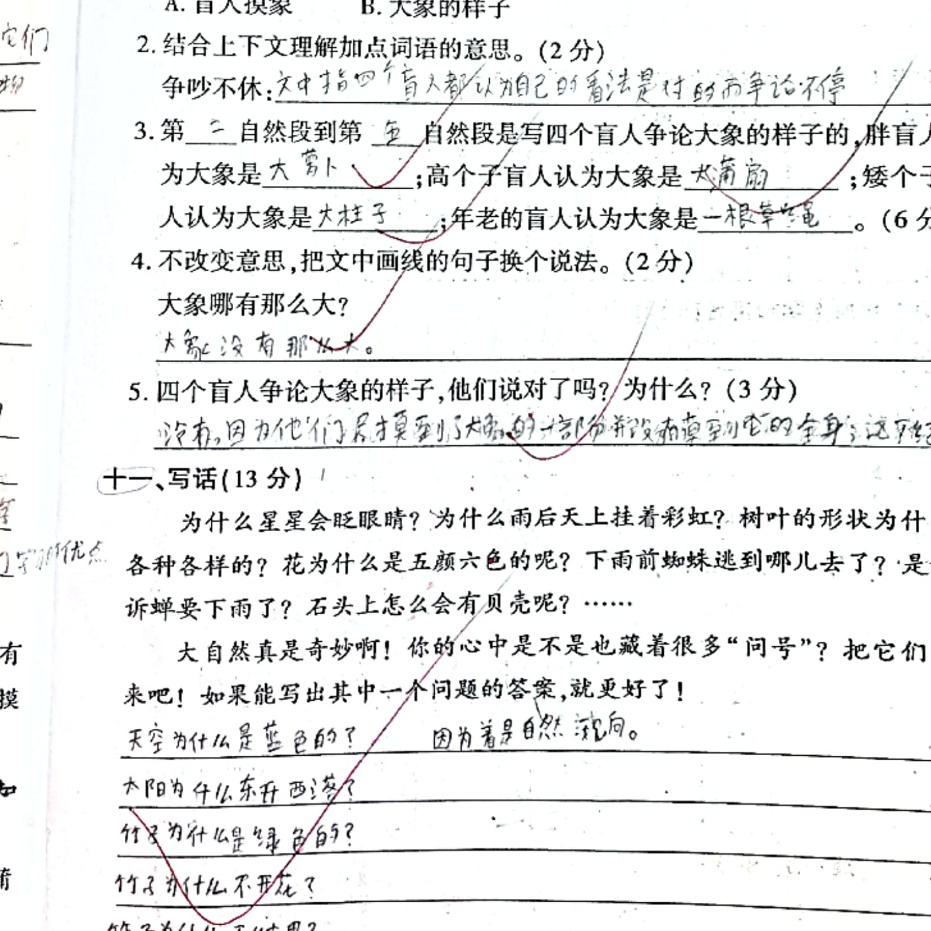 A. 盲人摸象 B. 大象的样子
2. 结合上下文理解加点词语的意思。(2 分)
争吵不休:文中指四个盲人都认为自己的看法是对的而争论不停
3. 第 二 自然段到第 五 自然段是写四个盲人争论大象的样子的,胖盲人
为大象是 大萝卜 ;高个子盲人认为大象是 大蒲扇 ;矮个子
人认为大象是 大柱子 ;年老的盲人认为大象是 一根草绳 。(6 分
4. 不改变意思,把文中画线的句子换个说法。(2 分)
大象哪有那么大?
大象没有那么大。
5. 四个盲人争论大象的样子,他们说对了吗? 为什么? (3 分)
没有,因为他们只摸到了大象的一部分并没有摸到它的全身
十一、写话(13 分)
为什么星星会眨眼睛? 为什么雨后天上挂着彩虹? 树叶的形状为什
各种各样的? 花为什么是五颜六色的呢? 下雨前蜘蛛逃到哪儿去了? 是
诉蝉要下雨了? 石头上怎么会有贝壳呢? ……
大自然真是奇妙啊! 你的心中是不是也藏着很多“问号”? 把它们
来吧! 如果能写出其中一个问题的答案,就更好了!
天空为什么是蓝色的? 因为着是自然
太阳为什么东升西落?
竹子为什么是绿色的?
竹子为什么不开花?
竹子为什么
它们
物
学习的优点
有
摸
如